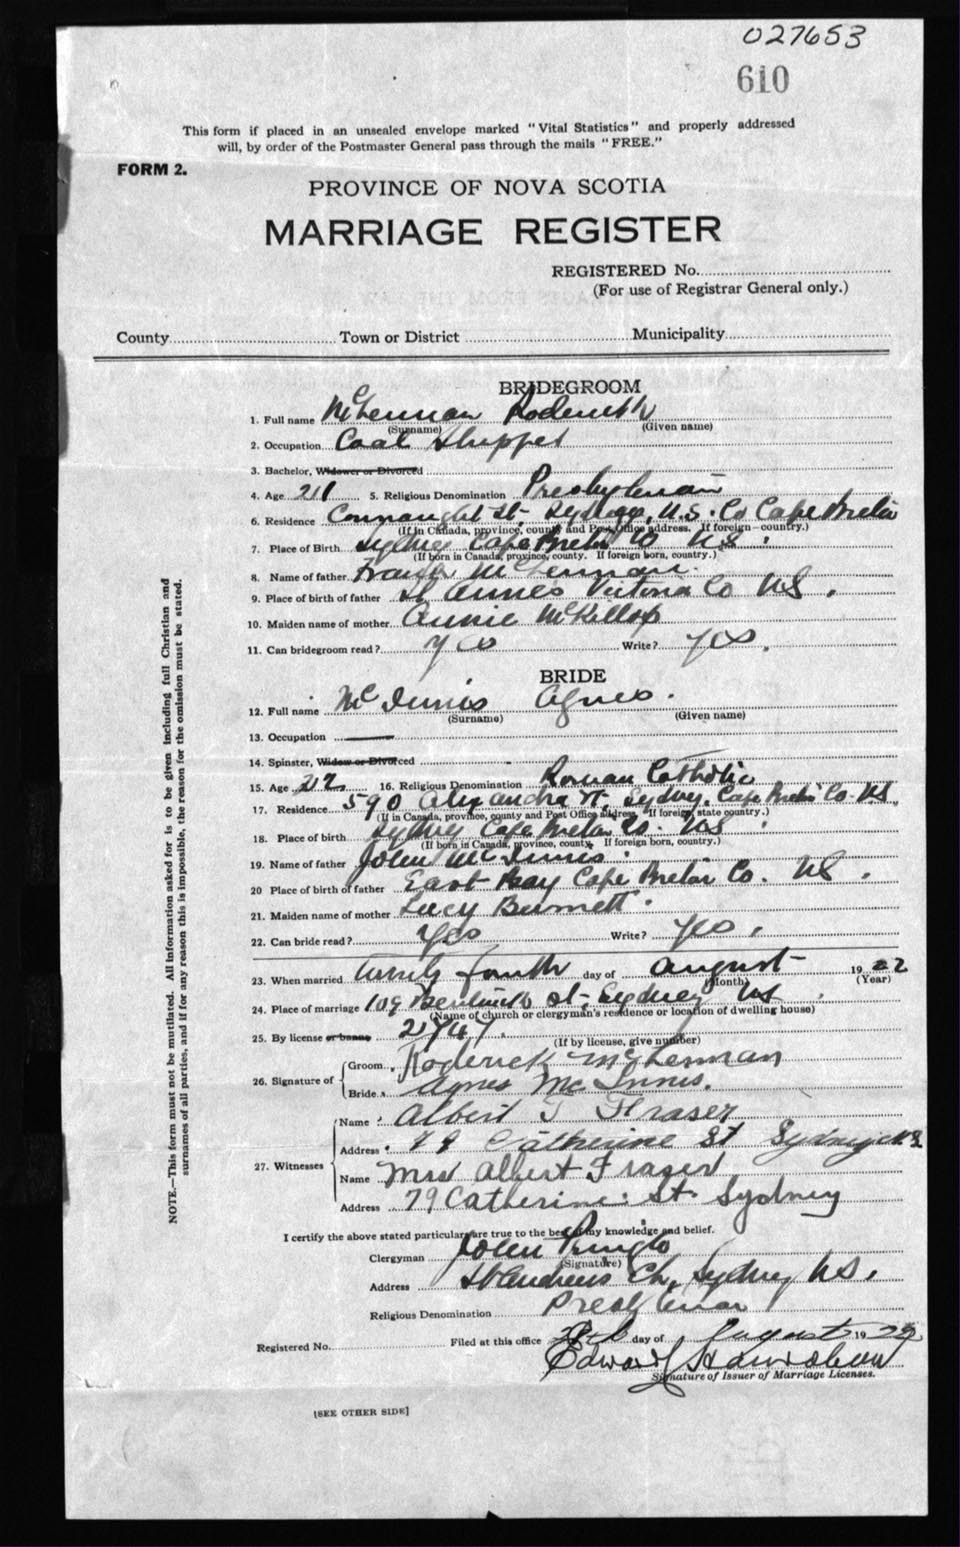 027653
610
This form if placed in an unsealed envelope marked "Vital Statistics" and properly addressed
will, by order of the Postmaster General pass through the mails "FREE."
FORM 2.
PROVINCE OF NOVA SCOTIA
MARRIAGE REGISTER
REGISTERED No.
(For use of Registrar General only.)
County Town or District Municipality
BRIDEGROOM
1. Full name McLennan Roderick
(Surname) (Given name)
2. Occupation Coal Shipper
3. Bachelor, Widower or Divorced
4. Age 5. Religious Denomination Presbyterian
6. Residence Connaught St, Sydney, N.S. Co Cape Breton
(If in Canada, province, county and Post Office address. If foreign-country.)
7. Place of Birth Sydney Cape Breton Co NS.
(If born in Canada, province, county. If foreign born, country.)
8. Name of father McLennan.
9. Place of birth of father St Annes Victoria Co NS.
10. Maiden name of mother Annie McKillop
11. Can bridegroom read? Yes Write? Yes.
BRIDE
12. Full name McInnis Agnes.
(Surname) (Given name)
13. Occupation —
14. Spinster, Widow or Divorced
15. Age 16. Religious Denomination Roman Catholic
17. Residence 590 Alexandra St, Sydney, Cape Breton Co. NS.
(If in Canada, province, county and Post Office address. If foreign, state country.)
18. Place of birth Sydney Cape Breton Co. NS.
(If born in Canada, province, county. If foreign born, country.)
19. Name of father John McInnis.
20 Place of birth of father East Bay Cape Breton Co. NS.
21. Maiden name of mother Lucy Burnett.
22. Can bride read? Yes Write? Yes.
23. When married twenty fourth day of August 1922
(Month) (Year)
24. Place of marriage 109 Bentinck St, Sydney NS.
(Name of church or clergyman's residence or location of dwelling house)
25. By license or banns 2747.
(If by license, give number)
26. Signature of Groom Roderick McLennan
Bride Agnes McInnis.
27. Witnesses Name Albert T Fraser
Address 79 Catherine St Sydney N.S.
Name Mrs Albert Fraser
Address 79 Catherine St. Sydney
I certify the above stated particulars are true to the best of my knowledge and belief.
Clergyman John Pringle
(Signature)
Address St Andrews Ch, Sydney NS.
Religious Denomination Presbyterian
Registered No. Filed at this office day of August 1922
Edward
Signature of Issuer of Marriage Licenses.
[SEE OTHER SIDE]
NOTE.—This form must not be mutilated. All information asked for is to be given including full Christian and
surnames of all parties, and if for any reason this is impossible, the reason for the omission must be stated.